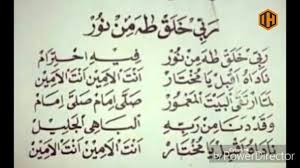 رَبِّي خَلَقَ طٰهَ مِنْ نُوْر
رَبِّي خَلَقَ طٰهَ مِنْ نُوْر فِيْهِ احْتِرَام
نَادَاهُ أَقْبِلْ يَا مُخْتَار أَنْتَ الْأَمِيْن أَنْتَ الْأَمِيْن
لَمَّا ارْتَقَى لِبَيْتِ الْمَعْمُوْر صَلَّى إِمَام صَلَّى إِمَام
وَقَدْ دَنَا مِنْ رَبِّهِ الْبَاهِي الْجَلِيْل
نَادَاهُ يَا مُخْتَار أَنْتَ الْأَمِيْن أَنْتَ الْأَمِيْن
PowerDirector